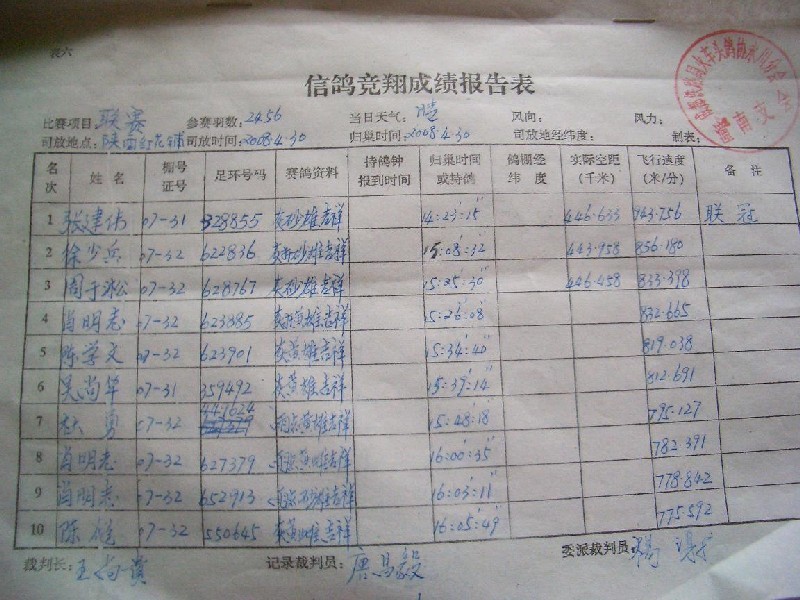 表六
信鸽竞翔成绩报告表
比赛项目: 联赛 参赛羽数: 2456 当日天气: 晴 风向: 风力:
司放地点: 司放时间: 2008.4.30 归巢时间: 2008.4.30 司放地经纬度: 制表:
名次 姓名 棚号证号 足环号码 赛鸽资料 持鸽钟报到时间 归巢时间或持鸽 鸽棚经纬度 实际空距(千米) 飞行速度(米/分) 备注
1 张建伟 07-31 328855 灰砂雄吉祥 14:23:15" 446.633 943.756 联冠
2 徐少兵 07-32 622836 吉祥 15:08:32" 443.958 836.180
3 周于淞 07-32 628767 灰砂雄吉祥 15:25:30" 446.458 833.398
4 肖明志 07-32 623885 雄吉祥 15:26:08" 832.665
5 陈学文 07-32 623901 灰黄雄吉祥 15:34:40" 819.038
6 吴尚华 07-31 359492 灰黄雄吉祥 15:39:14" 812.691
7 勇 07-32 449624 雨点黄雄吉祥 15:48:18" 795.127
8 肖明志 07-32 627379 吉祥 16:00:35" 782.391
9 肖明志 07-32 652913 雨点砂雄吉祥 16:03:11" 778.842
10 陈 07-32 550645 吉祥 16:05:49" 775.592
裁判长: 王 记录裁判员: 唐 委派裁判员: 杨